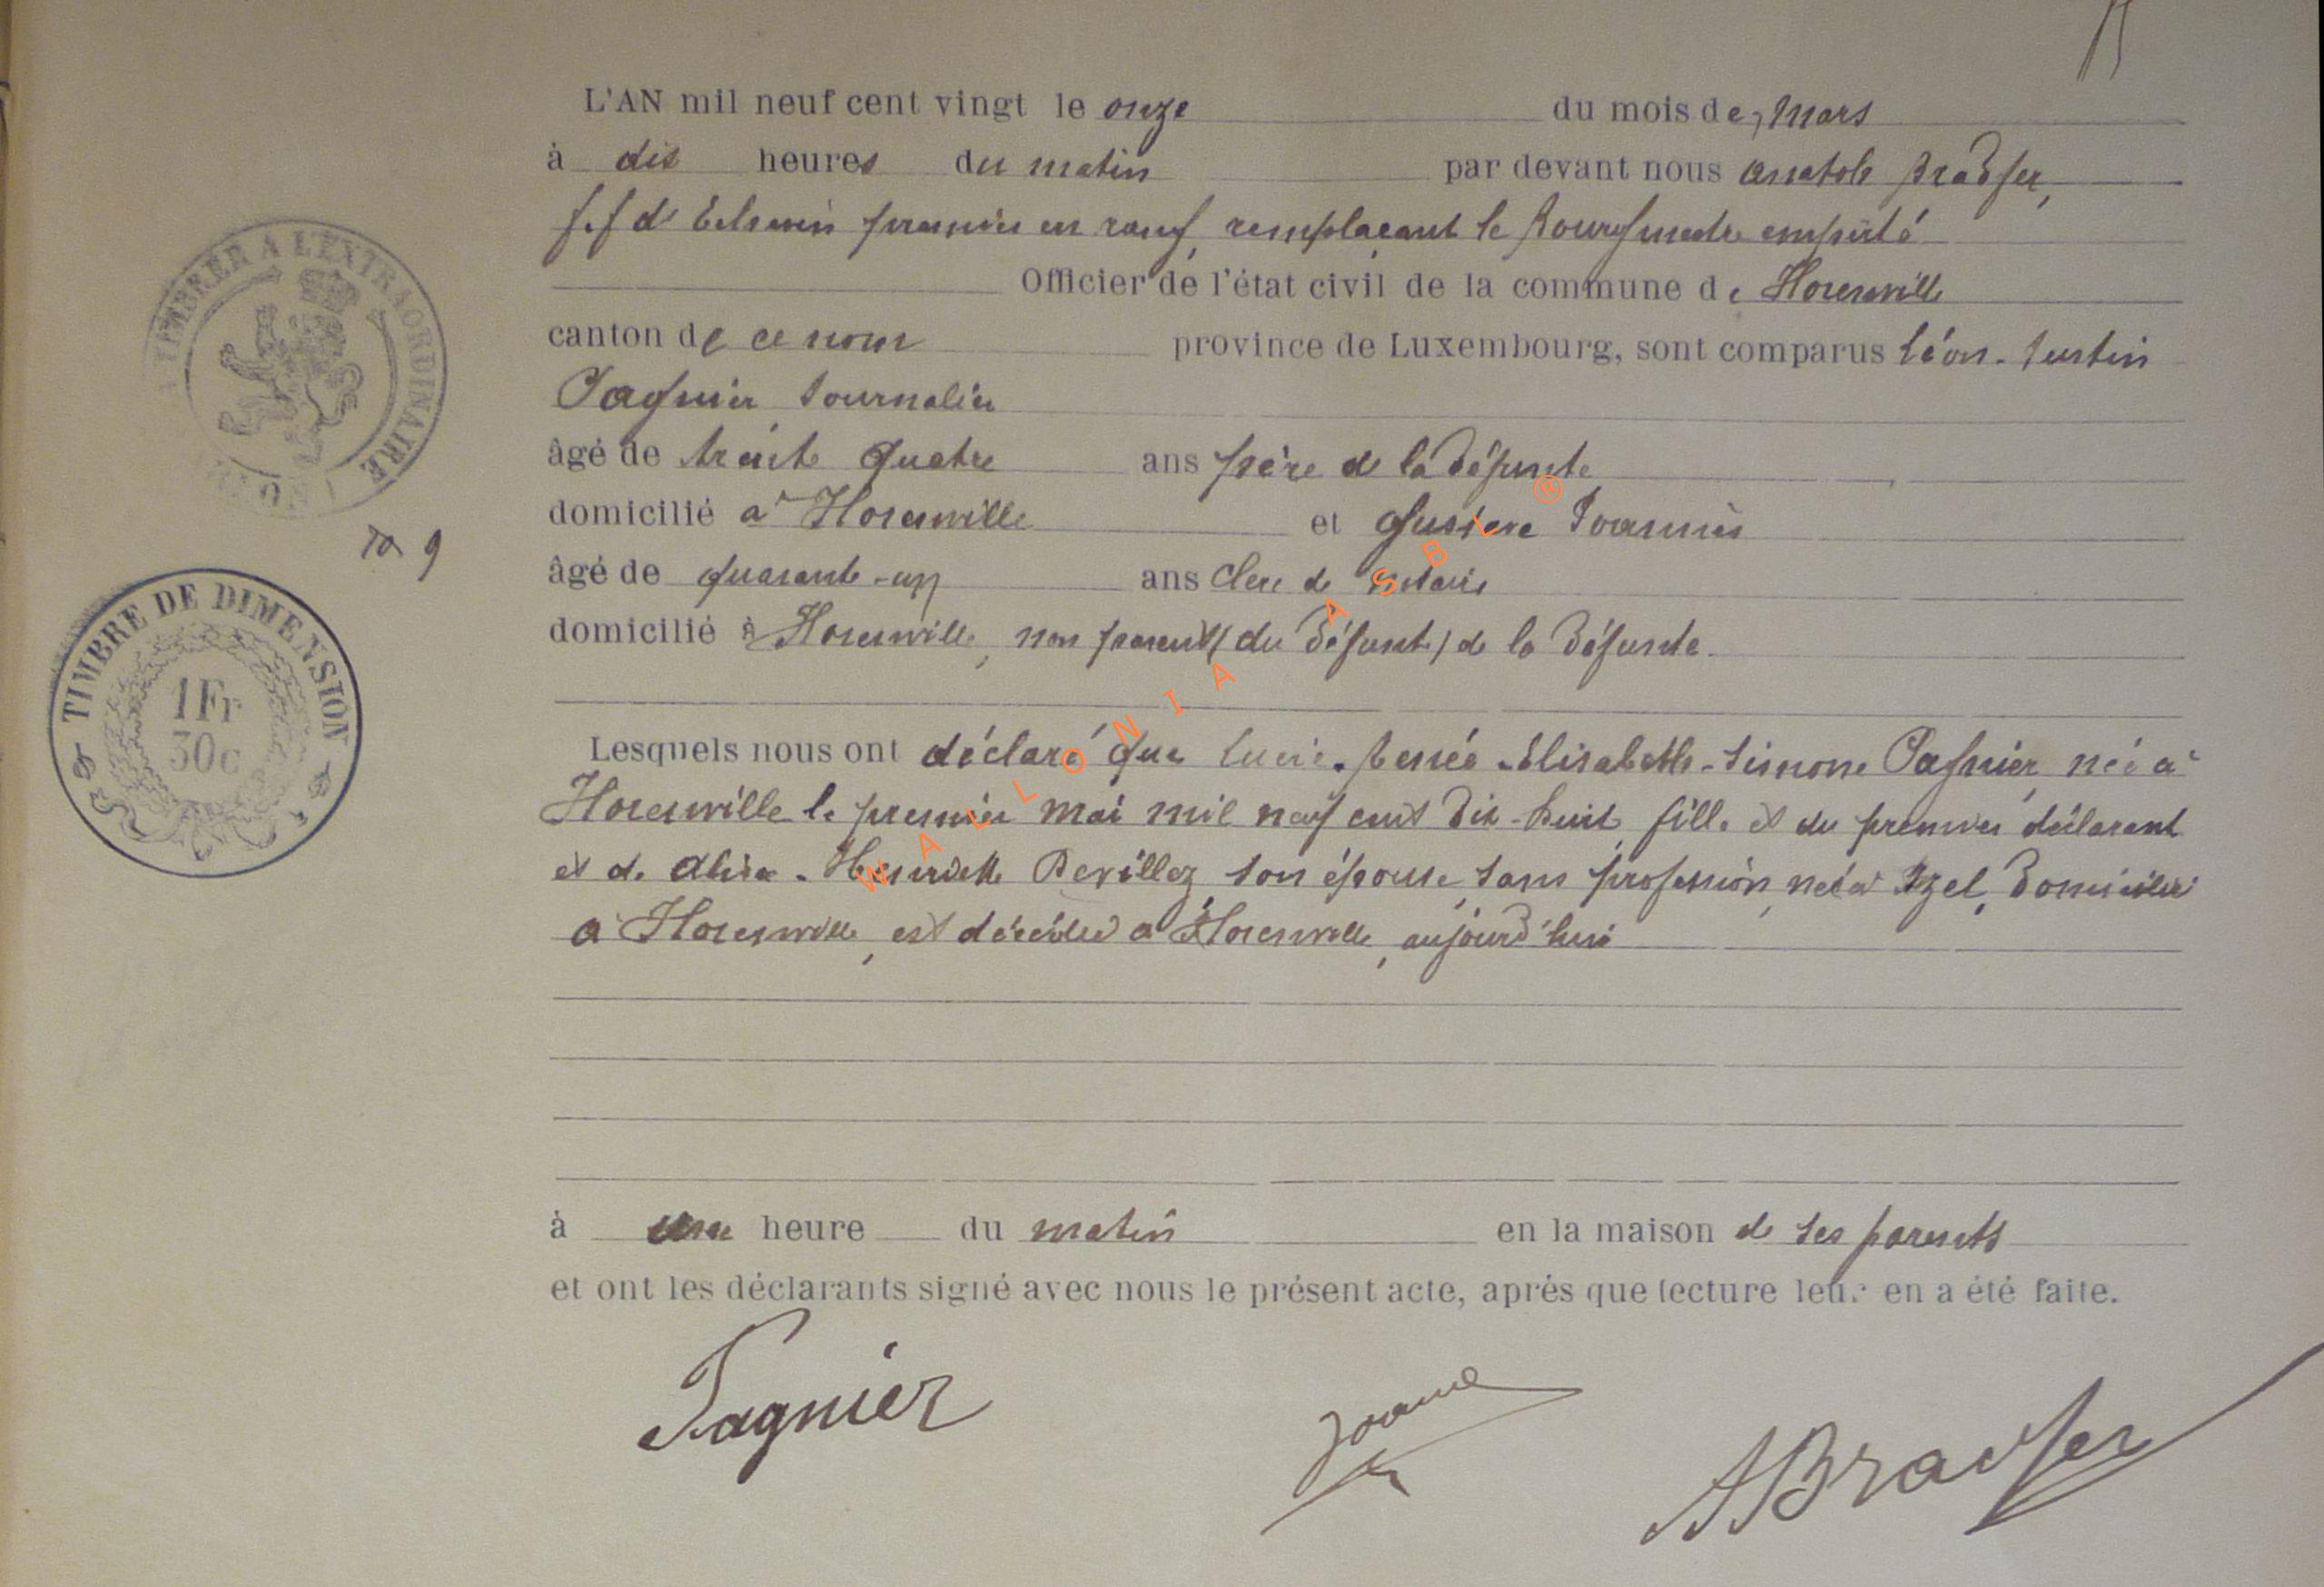 L'AN mil neuf cent vingt le onze du mois de Mars
à dix heures du matin par devant nous Anatole Bradfer,
f.f d'Echevin premier en rang, remplaçant le Bourgmestre empêché
Officier de l'état civil de la commune de Florenville
canton de ce nom province de Luxembourg, sont comparus Léon-Justin
Pagnier, Journalier
âgé de trente quatre ans père de la défunte
domicilié à Florenville et Gustave Joannès
âgé de quarante-un ans Clerc de notaire
domicilié à Florenville, non parent (du défunt) de la défunte.
Lesquels nous ont déclaré que Lucie-Renée-Elisabeth-Simone Pagnier, née à
Florenville le premier Mai mil neuf cent dix-huit, fille et du premier déclarant
et de Alice-Henriette Devillez son épouse, sans profession, née à Izel, domiciliée
à Florenville, est décédée à Florenville, aujourd'hui
à une heure du matin en la maison de ses parents
et ont les déclarants signé avec nous le présent acte, après que lecture leur en a été faite.
Pagnier
ABradfer
A TIMBRER A L'EXTRAORDINAIRE
9
TIMBRE DE DIMENSION
1Fr
30c
WALLONIA ASBL ®